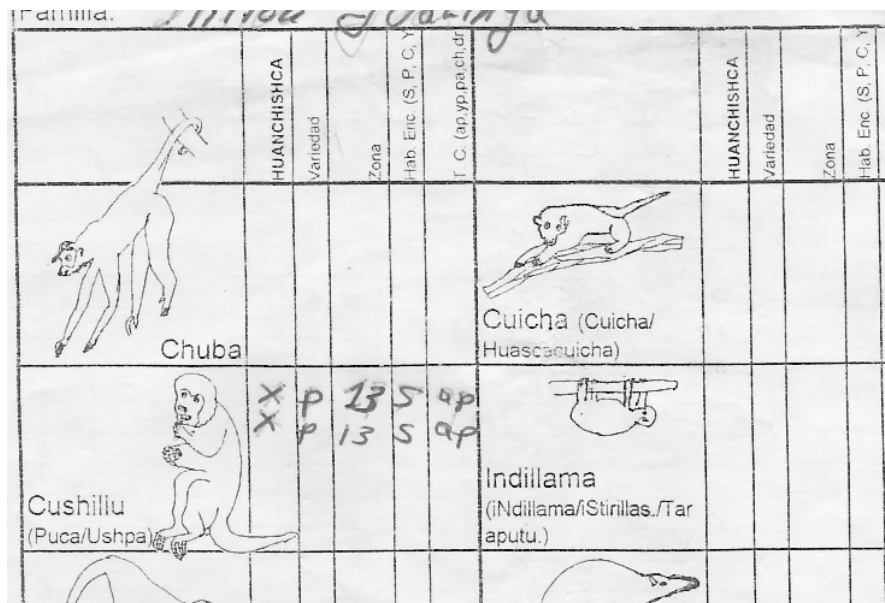 Familia:
HUANCHISHCA
Variedad
Zona
Hab. Enc. (S, P, C, Y
T. C. (ap,yp,pa,ch,dr
HUANCHISHCA
Variedad
Zona
Hab. Enc. (S, P, C, Y
Chuba
Cuicha (Cuicha/
Huascacuicha)
Cushiliu
(Puca/Ushpa)
X p 13 S ap
X p 13 S ap
Indillama
(iNdillama/iStirillas./Tar
aputu.)